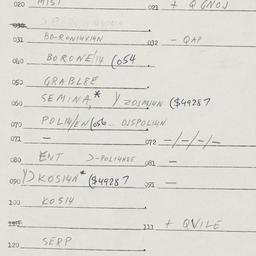 020 MIST 021 + Q GNOJ
030
031 BO-RONI4VIAN 032 - QAP
040 BORONE/14 (054
050 GRABL8E
060 SEMINA,* Y ZOIMI4N ($49287
070 POLI4/EN (056 .. DISPOLI4N
071 - 072 -/-/-/-
080 ENT >-POLI4N8E 081 -
090 Y> KOSI4N* ($49287 091 -
100 KOSI4
111 + QVILE
120 SERP